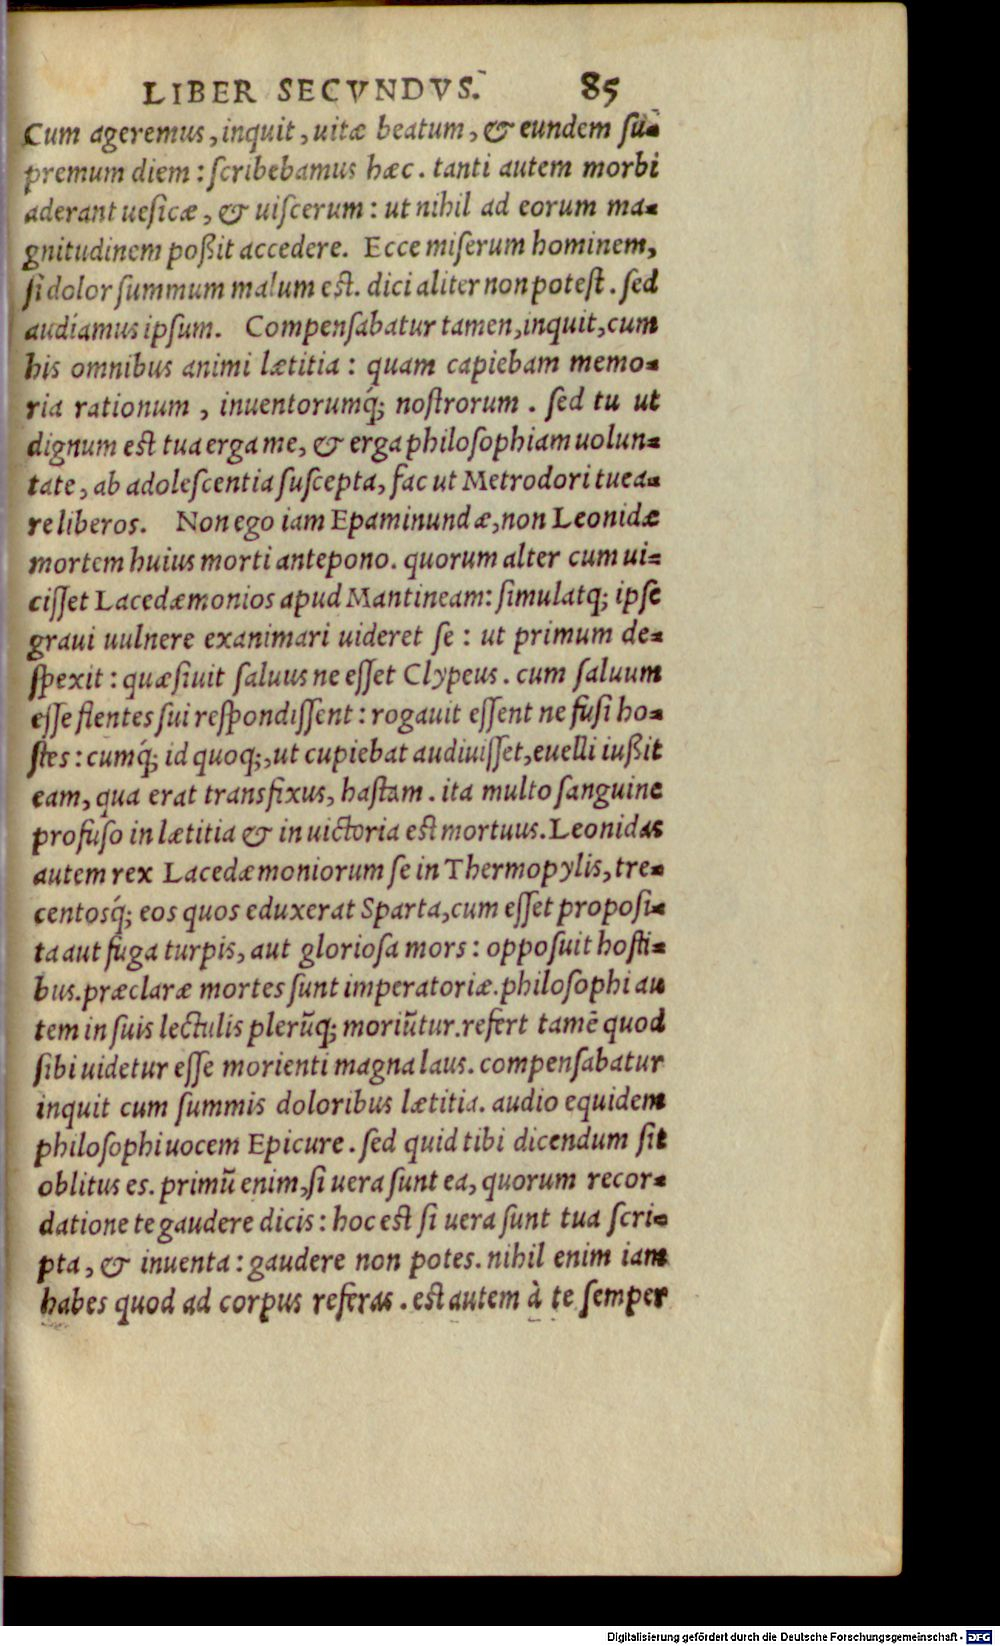 LIBER SECVNDVS. 85
Cum ageremus, inquit, uitæ beatum, & eundem su-
premum diem: scribebamus hæc. tanti autem morbi
aderant uesicæ, & uiscerum: ut nihil ad eorum ma-
gnitudinem poßit accedere. Ecce miserum hominem,
si dolor summum malum est. dici aliter non potest. sed
audiamus ipsum. Compensabatur tamen, inquit, cum
his omnibus animi lætitia: quam capiebam memo-
ria rationum, inuentorumq́; nostrorum. sed tu ut
dignum est tua erga me, & erga philosophiam uolun-
tate, ab adolescentia suscepta, fac ut Metrodori tuea-
re liberos. Non ego iam Epaminundæ, non Leonidæ
mortem huius morti antepono. quorum alter cum ui-
cisset Lacedæmonios apud Mantineam: simulatq; ipse
graui uulnere exanimari uideret se: ut primum de-
spexit: quæsiuit saluus ne esset Clypeus. cum saluum
esse flentes sui respondissent: rogauit essent ne fusi ho-
stes: cumq́; id quoq;, ut cupiebat audiuisset, euelli iußit
eam, qua erat transfixus, hastam. ita multo sanguine
profuso in lætitia & in uictoria est mortuus. Leonidas
autem rex Lacedæmoniorum se in Thermopylis, tre-
centosq́; eos quos eduxerat Sparta, cum esset proposi-
ta aut fuga turpis, aut gloriosa mors: opposuit hosti-
bus. præclaræ mortes sunt imperatoriæ. philosophi au
tem in suis lectulis plerũq; moriũtur. refert tamẽ quod
sibi uidetur esse morienti magna laus. compensabatur
inquit cum summis doloribus lætitia. audio equidem
philosophi uocem Epicure. sed quid tibi dicendum sit
oblitus es. primũ enim, si uera sunt ea, quorum recor-
datione te gaudere dicis: hoc est si uera sunt tua scri-
pta, & inuenta: gaudere non potes. nihil enim iam
habes quod ad corpus referas. est autem à te semper
Digitalisierung gefördert durch die Deutsche Forschungsgemeinschaft - DFG